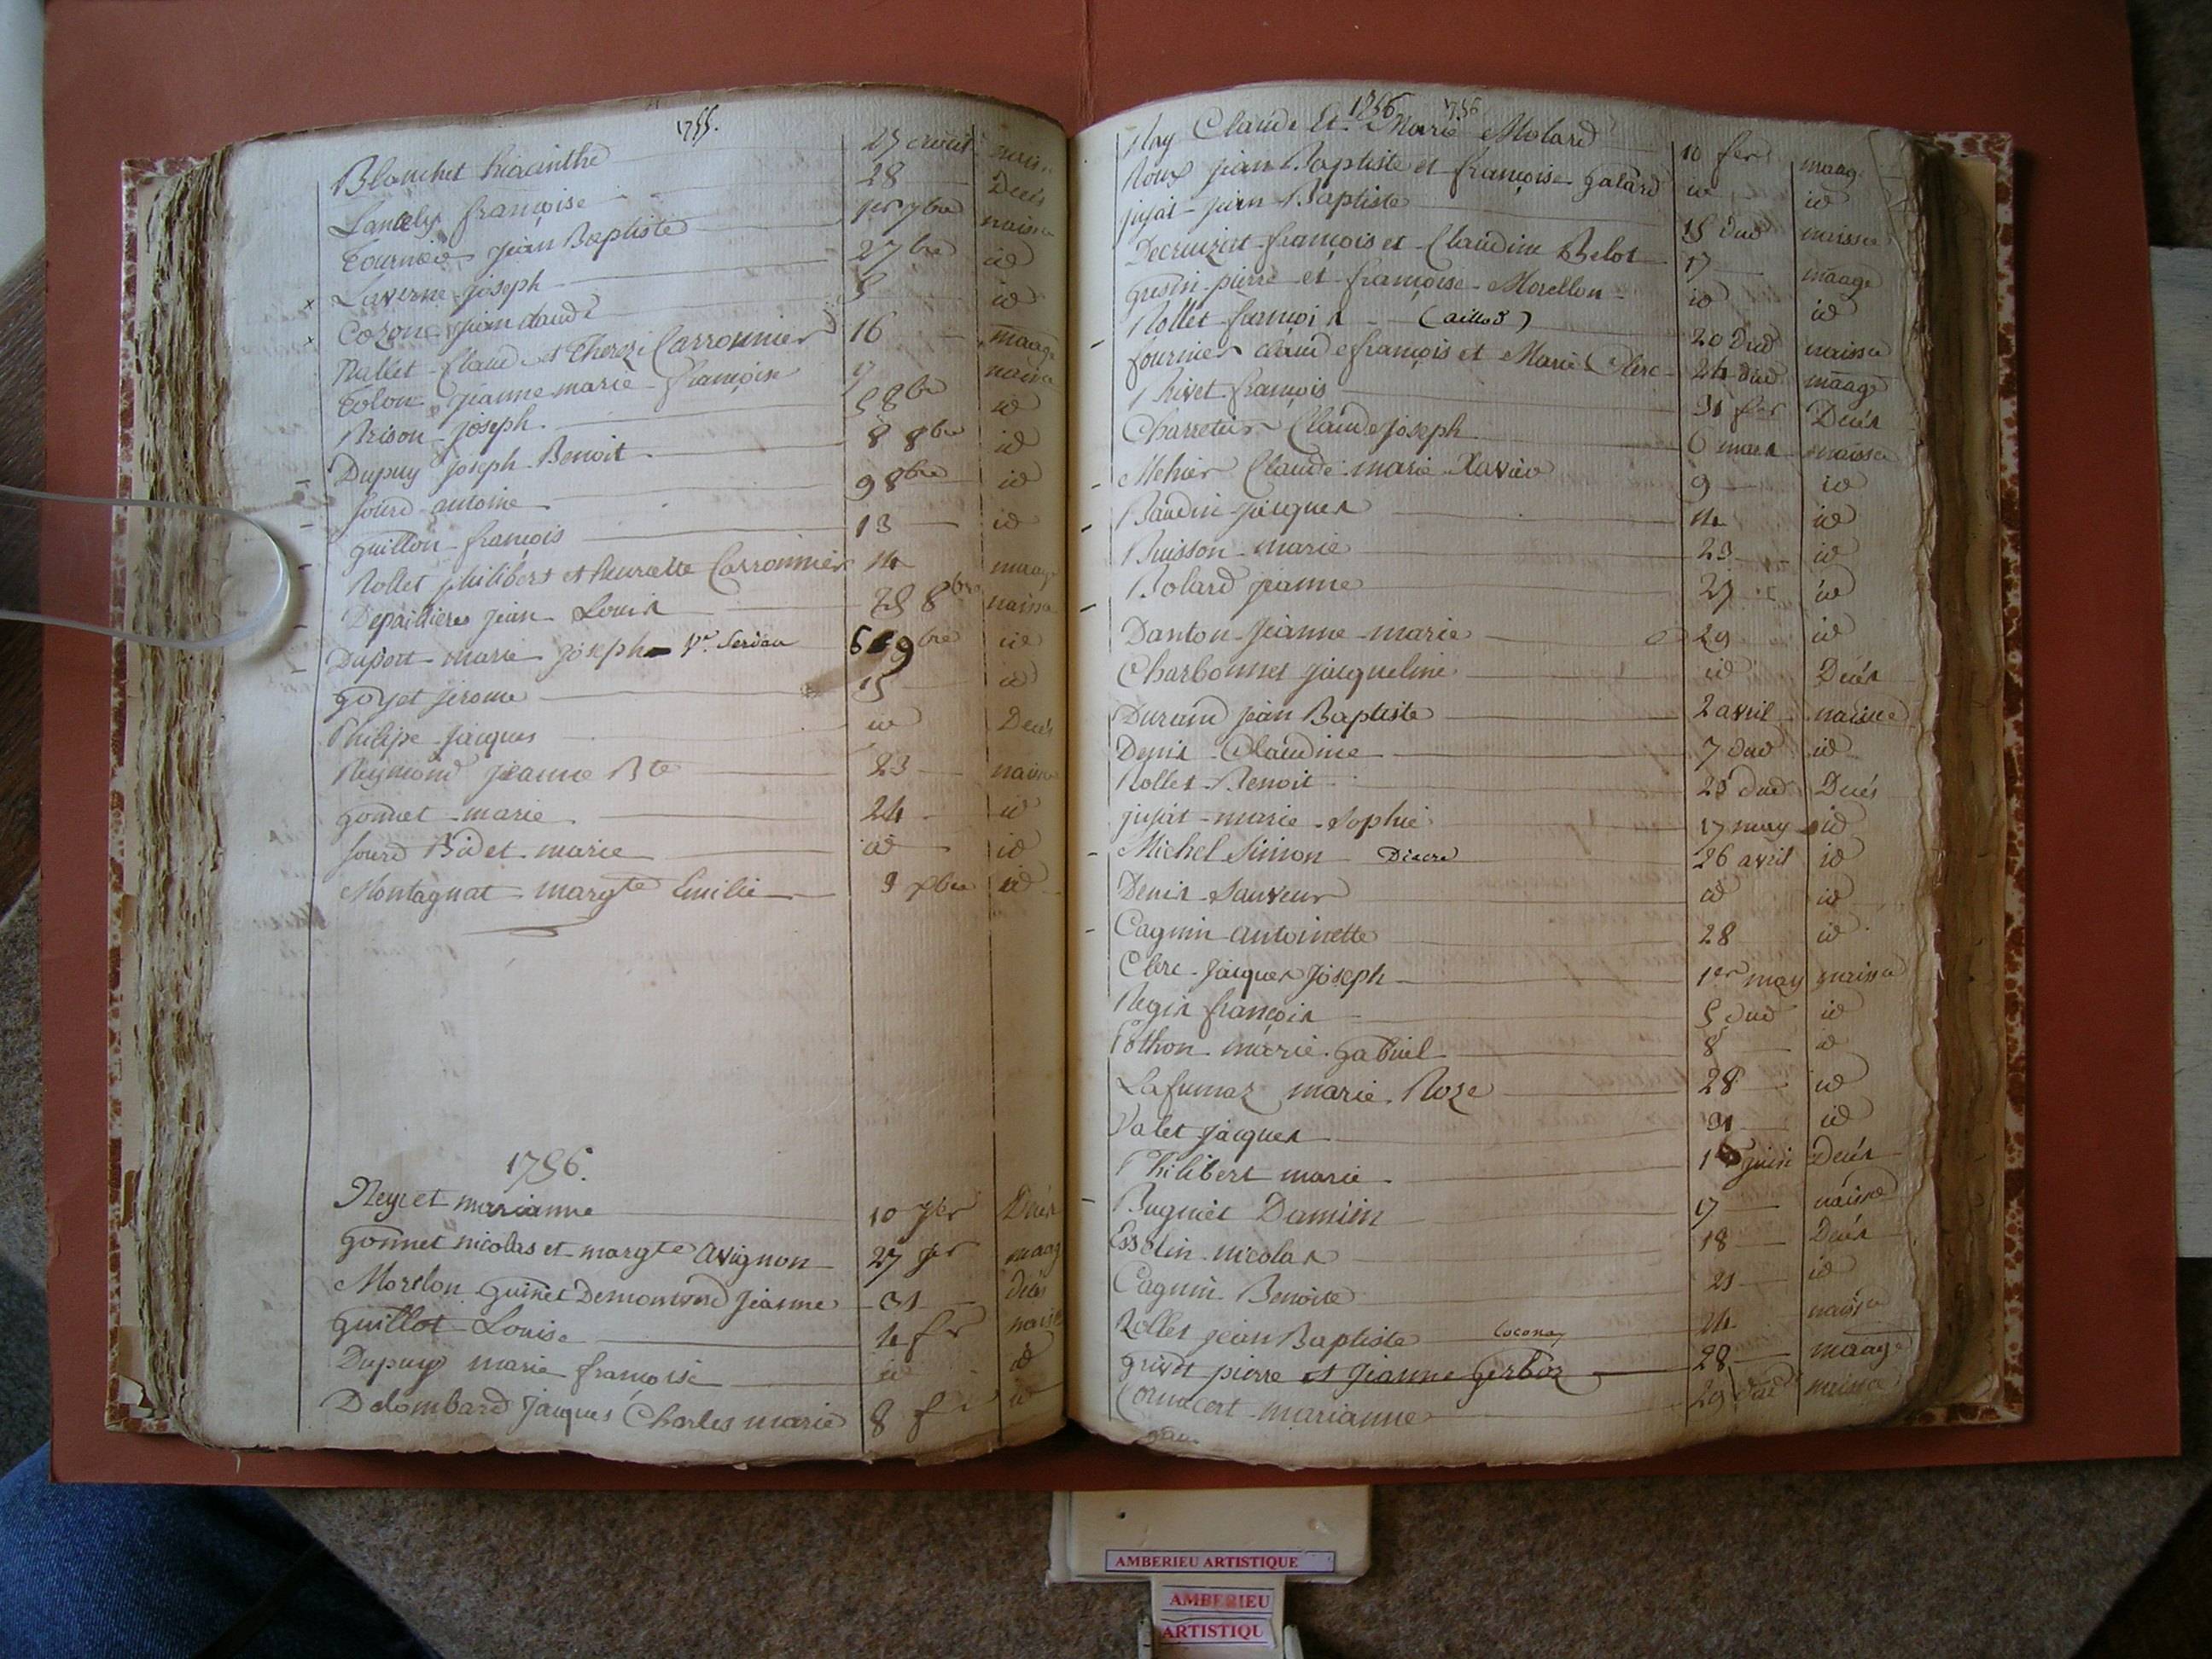 1755.
Blanchet hiacinthe 25 aout naiss
Lantely françoise 28 Decés
Tournier jean Baptiste 1er 7bre naissce
Laverne joseph 2 7bre id
x Cozon jean claude 5 id
x Nallet Claude et Therese Carronnier 16 maage
Tolon jeanne marie françoise naissce
Brison joseph 5 8bre id
Dupuy joseph Benoit 8 8bre id
Sourd antoine 9 8bre id
Guillon francois 13 id
Rollet philibert et henriette Carronnier 14 maage
Depaillieres jean Louis 25 8bre naissce
Duport marie joseph 6 9bre id
Goyet jerome 15 id
Philipe jacques id Decés
Reymond jeanne Bte 23 naissce
Gonnet marie 24 id
Sourd Bidet marie id id
Montagnat margte Emilie 9 xbre id
1756.
Neyret marianne 10 jer Decés
Gonnet nicolas et margte Avignon 27 jer maage
Morelon Guinet Demontond jeanne 31 decés
Guillot Louise 4 fer naissce
Dupuy marie françoise id id
Delombard jacques Charles marie 8 fer id
1756 1756
Ray Claude Et Marie Molard 10 fer maage
Roux jean Baptiste et françoise Galard id id
jujat jean Baptiste 15 dud naissce
Decruizat françois et Claudine Belot 17 maage
Gresin pierre et françoise Morellon id id
Rollet françois (aillod) 20 Dud naissce
fournier claude françois et Marie Clerc 24 dud maage
Rivet françois 31 fer Decés
Charretier Claude joseph 6 mars naissce
Mehier Claude marie Xavier 9 id
Baudin jacques 14 id
Buisson marie 23 id
Bolard jeanne 27 id
Danton jeanne marie 29 id
Charbonnet jacqueline id Decés
Durand jean Baptiste 2 avril naissce
Denis Claudine 7 dud id
Rollet Benoit 23 dud Decés
jujat marie Sophie 17 may id
Michel Simon Diacre 26 avril id
Denis Sauveur id id
Cagnin antoinette 28 id
Clerc jacques joseph 1er may naissce
Regis françois 5 dud id
Pothon marie gabriel 8 id
Lafumaz marie Roze 28 id
Valet jacques 31 id
Philibert marie 1 juin Decés
Bugniet Damien 17 naissce
Esselin nicolas 18 Decés
Cagnin Benoite 21 id
Rollet jean Baptiste Coconay 24 naissce
Grivet pierre et jeanne Gerboz 28 maage
marianne 29 dud naissce
AMBERIEU ARTISTIQUE
AMBERIEU
ARTISTIQU